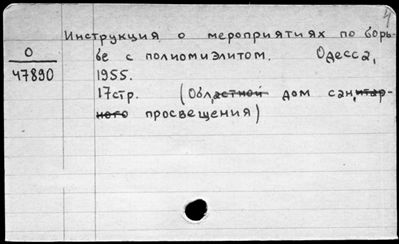 4
Инструкция о мероприятиях по борь-
О бе с полиомиэлитом. Одесса,
47890 1955.
17стр. (Областной дом санитар-
ного просвещения)